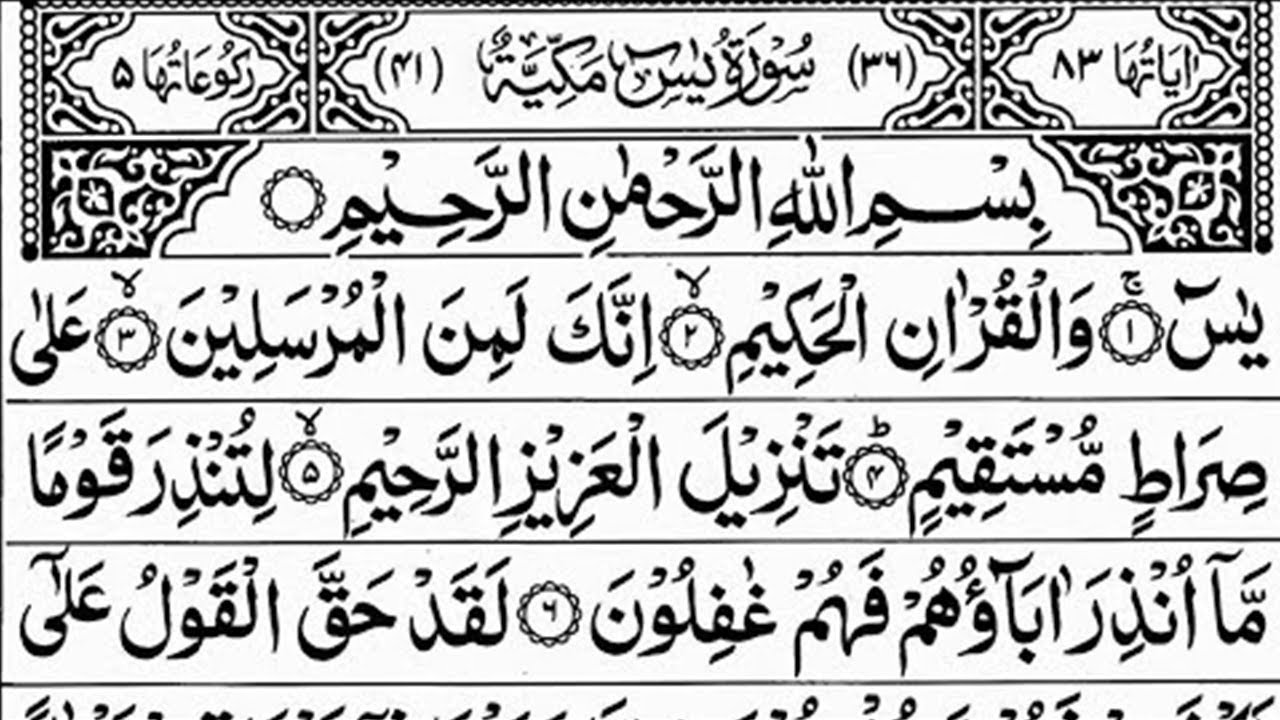 اٰیَاتُهَا ۸۳ (۳۶) سُوْرَةُ یٰسٓ مَکِّیَّةٌ (۴۱) رُکُوْعَاتُهَا ۵
بِسْمِ اللّٰهِ الرَّحْمٰنِ الرَّحِیْمِ
یٰسٓ ۚ‏﴿۱﴾ وَالْقُرْاٰنِ الْحَکِیْمِ ۙ‏﴿۲﴾ اِنَّكَ لَمِنَ الْمُرْسَلِیْنَ ۙ‏﴿۳﴾ عَلٰی
صِرَاطٍ مُّسْتَقِیْمٍ ؕ‏﴿۴﴾ تَنْزِیْلَ الْعَزِیْزِ الرَّحِیْمِ ۙ‏﴿۵﴾ لِتُنْذِرَ قَوْمًا
مَّاۤ اُنْذِرَ اٰبَآؤُهُمْ فَهُمْ غٰفِلُوْنَ ﴿۶﴾ لَقَدْ حَقَّ الْقَوْلُ عَلٰۤی